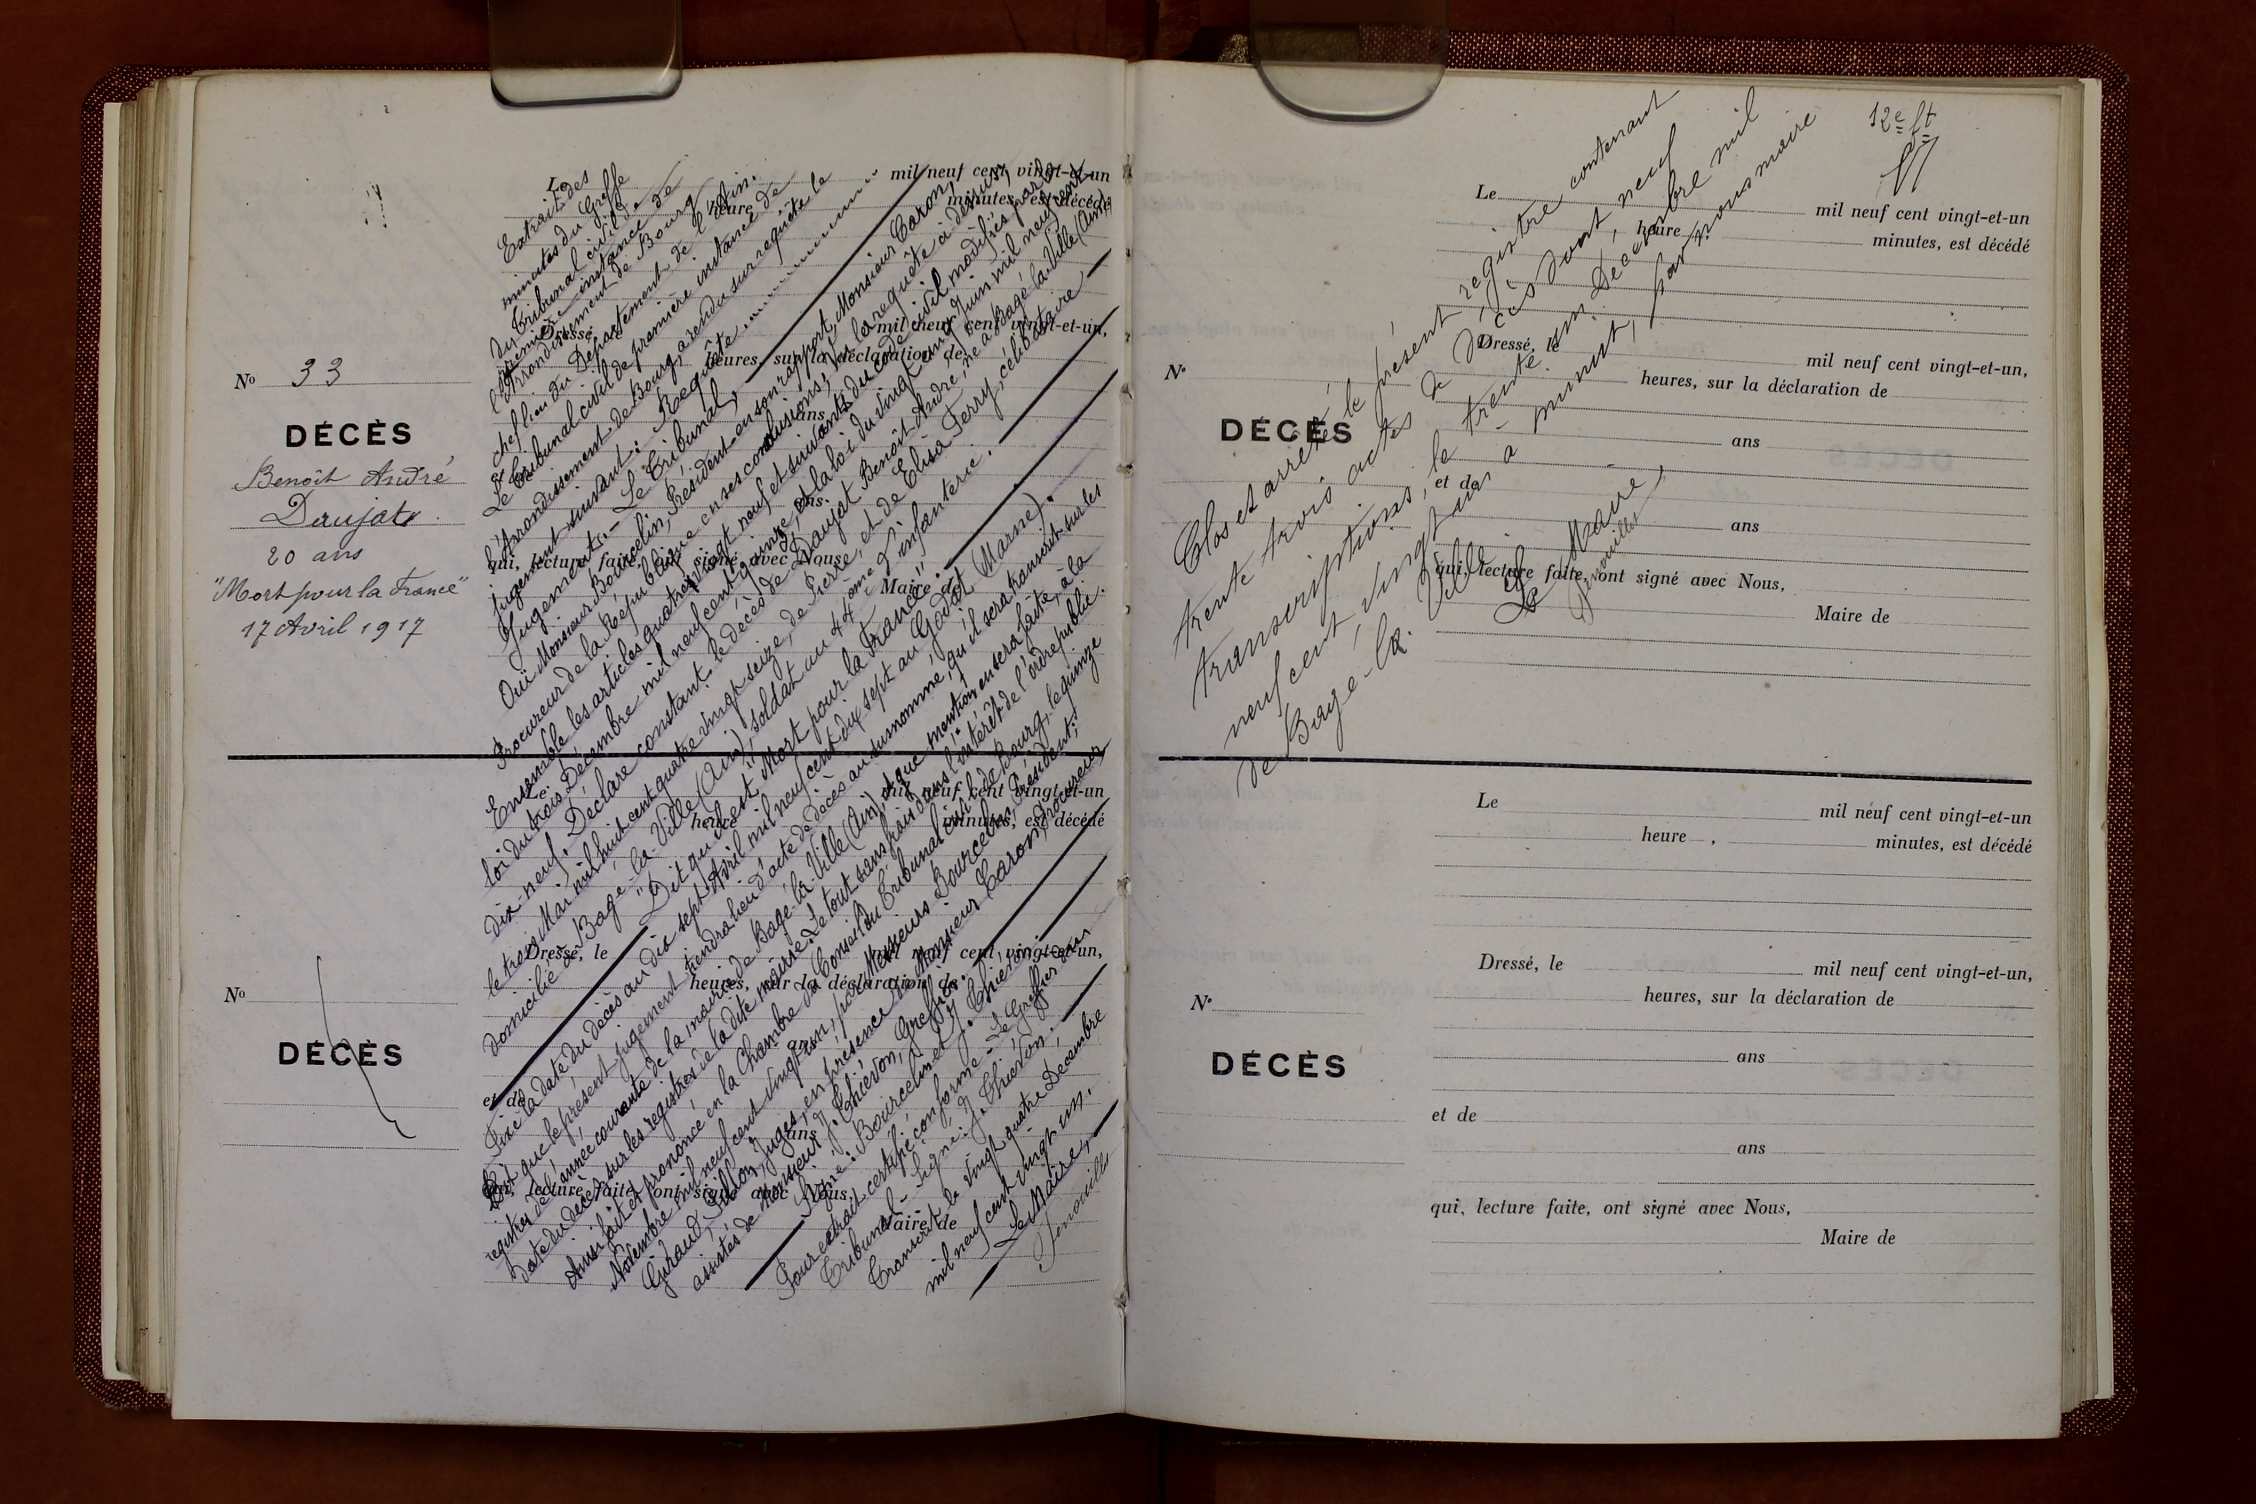 Nº 33
DÉCÈS
Benoît André
Daujat
20 ans
"Mort pour la France"
17 Avril 1917
Le mil neuf cent vingt-et-un
heure minutes, est décédé
Dressé, le mil neuf cent vingt-et-un,
heures, sur la déclaration de
ans
et de
ans
qui, lecture faite, ont signé avec Nous,
Maire de
Extrait des
minutes du Greffe
du Tribunal civil de
première instance de
l'Arrondissement de Bourg
chef lieu du Département de l'Ain.
Le Tribunal civil de première instance de
l'Arrondissement de Bourg, a rendu sur requête le
Jugement suivant: Requête
Jugement. - Le Tribunal,
Ouï Monsieur Bourcelin, Président en son rapport, Monsieur Caron,
Procureur de la République en ses conclusions; Vu la requête ci-dessus,
Ensemble les articles quatre vingt neuf et suivants du code civil, modifiés par la
loi du trois Décembre mil neuf cent quinze, et la loi du vingt cinq Juin mil neuf cent
dix-neuf. Déclare constant le décès de Daujat Benoît André, né à Bagé-la-Ville (Ain),
le trois Mai mil huit cent quatre vingt seize, de Pierre, et de Elisa Ferry, célibataire
domicilié à Bagé-la-Ville (Ain), soldat au 44ème d'infanterie.
Dit qu'il est "Mort pour la France".
Fixe la date du décès au dix sept Avril mil neuf cent dix sept au Godat (Marne).
Dit que le présent jugement tiendra lieu d'acte de décès au susnommé, qu'il sera transcrit sur les
registres de l'année courante de la mairie de Bagé-la-Ville (Ain), et que mention en sera faite, à la
date du décès sur les registres de la dite mairie. Le tout sans frais dans l'intérêt de l'ordre public.
Ainsi fait et prononcé en la Chambre du Conseil du Tribunal civil de Bourg, le quinze
Novembre mil neuf cent vingt un, par Messieurs Bourcelin, Président,
Giraud, Sillon, Juges, en présence de Monsieur Caron, Procureur
assistés de Monsieur J. Chièvron, Greffier.
Signé: Bourcelin et J. Chièvron
Pour extrait certifié conforme - Le Greffier du
Tribunal - Signé: J. Chièvron.
Transcrit le vingt quatre Décembre
mil neuf cent vingt un.
Le Maire,
Nº
DÉCÈS
Le mil neuf cent vingt-et-un
heure minutes, est décédé
Dressé, le mil neuf cent vingt-et-un,
heures, sur la déclaration de
et de
ans
qui, lecture faite, ont signé avec Nous,
Maire de
12e ft
Nº
DÉCÈS
Le mil neuf cent vingt-et-un
heure minutes, est décédé
Dressé, le mil neuf cent vingt-et-un,
heures, sur la déclaration de
ans
et de
ans
qui, lecture faite, ont signé avec Nous,
Maire de
Clos et arrêté le présent registre contenant
trente trois actes de Décès dont neuf
transcriptions, le trente un Décembre mil
neuf cent vingt un à minuit, par nous maire
de Bagé-la-Ville
Le Maire,
Nº
DÉCÈS
Le mil neuf cent vingt-et-un
heure , minutes, est décédé
Dressé, le mil neuf cent vingt-et-un,
heures, sur la déclaration de
ans
et de
ans
qui, lecture faite, ont signé avec Nous,
Maire de